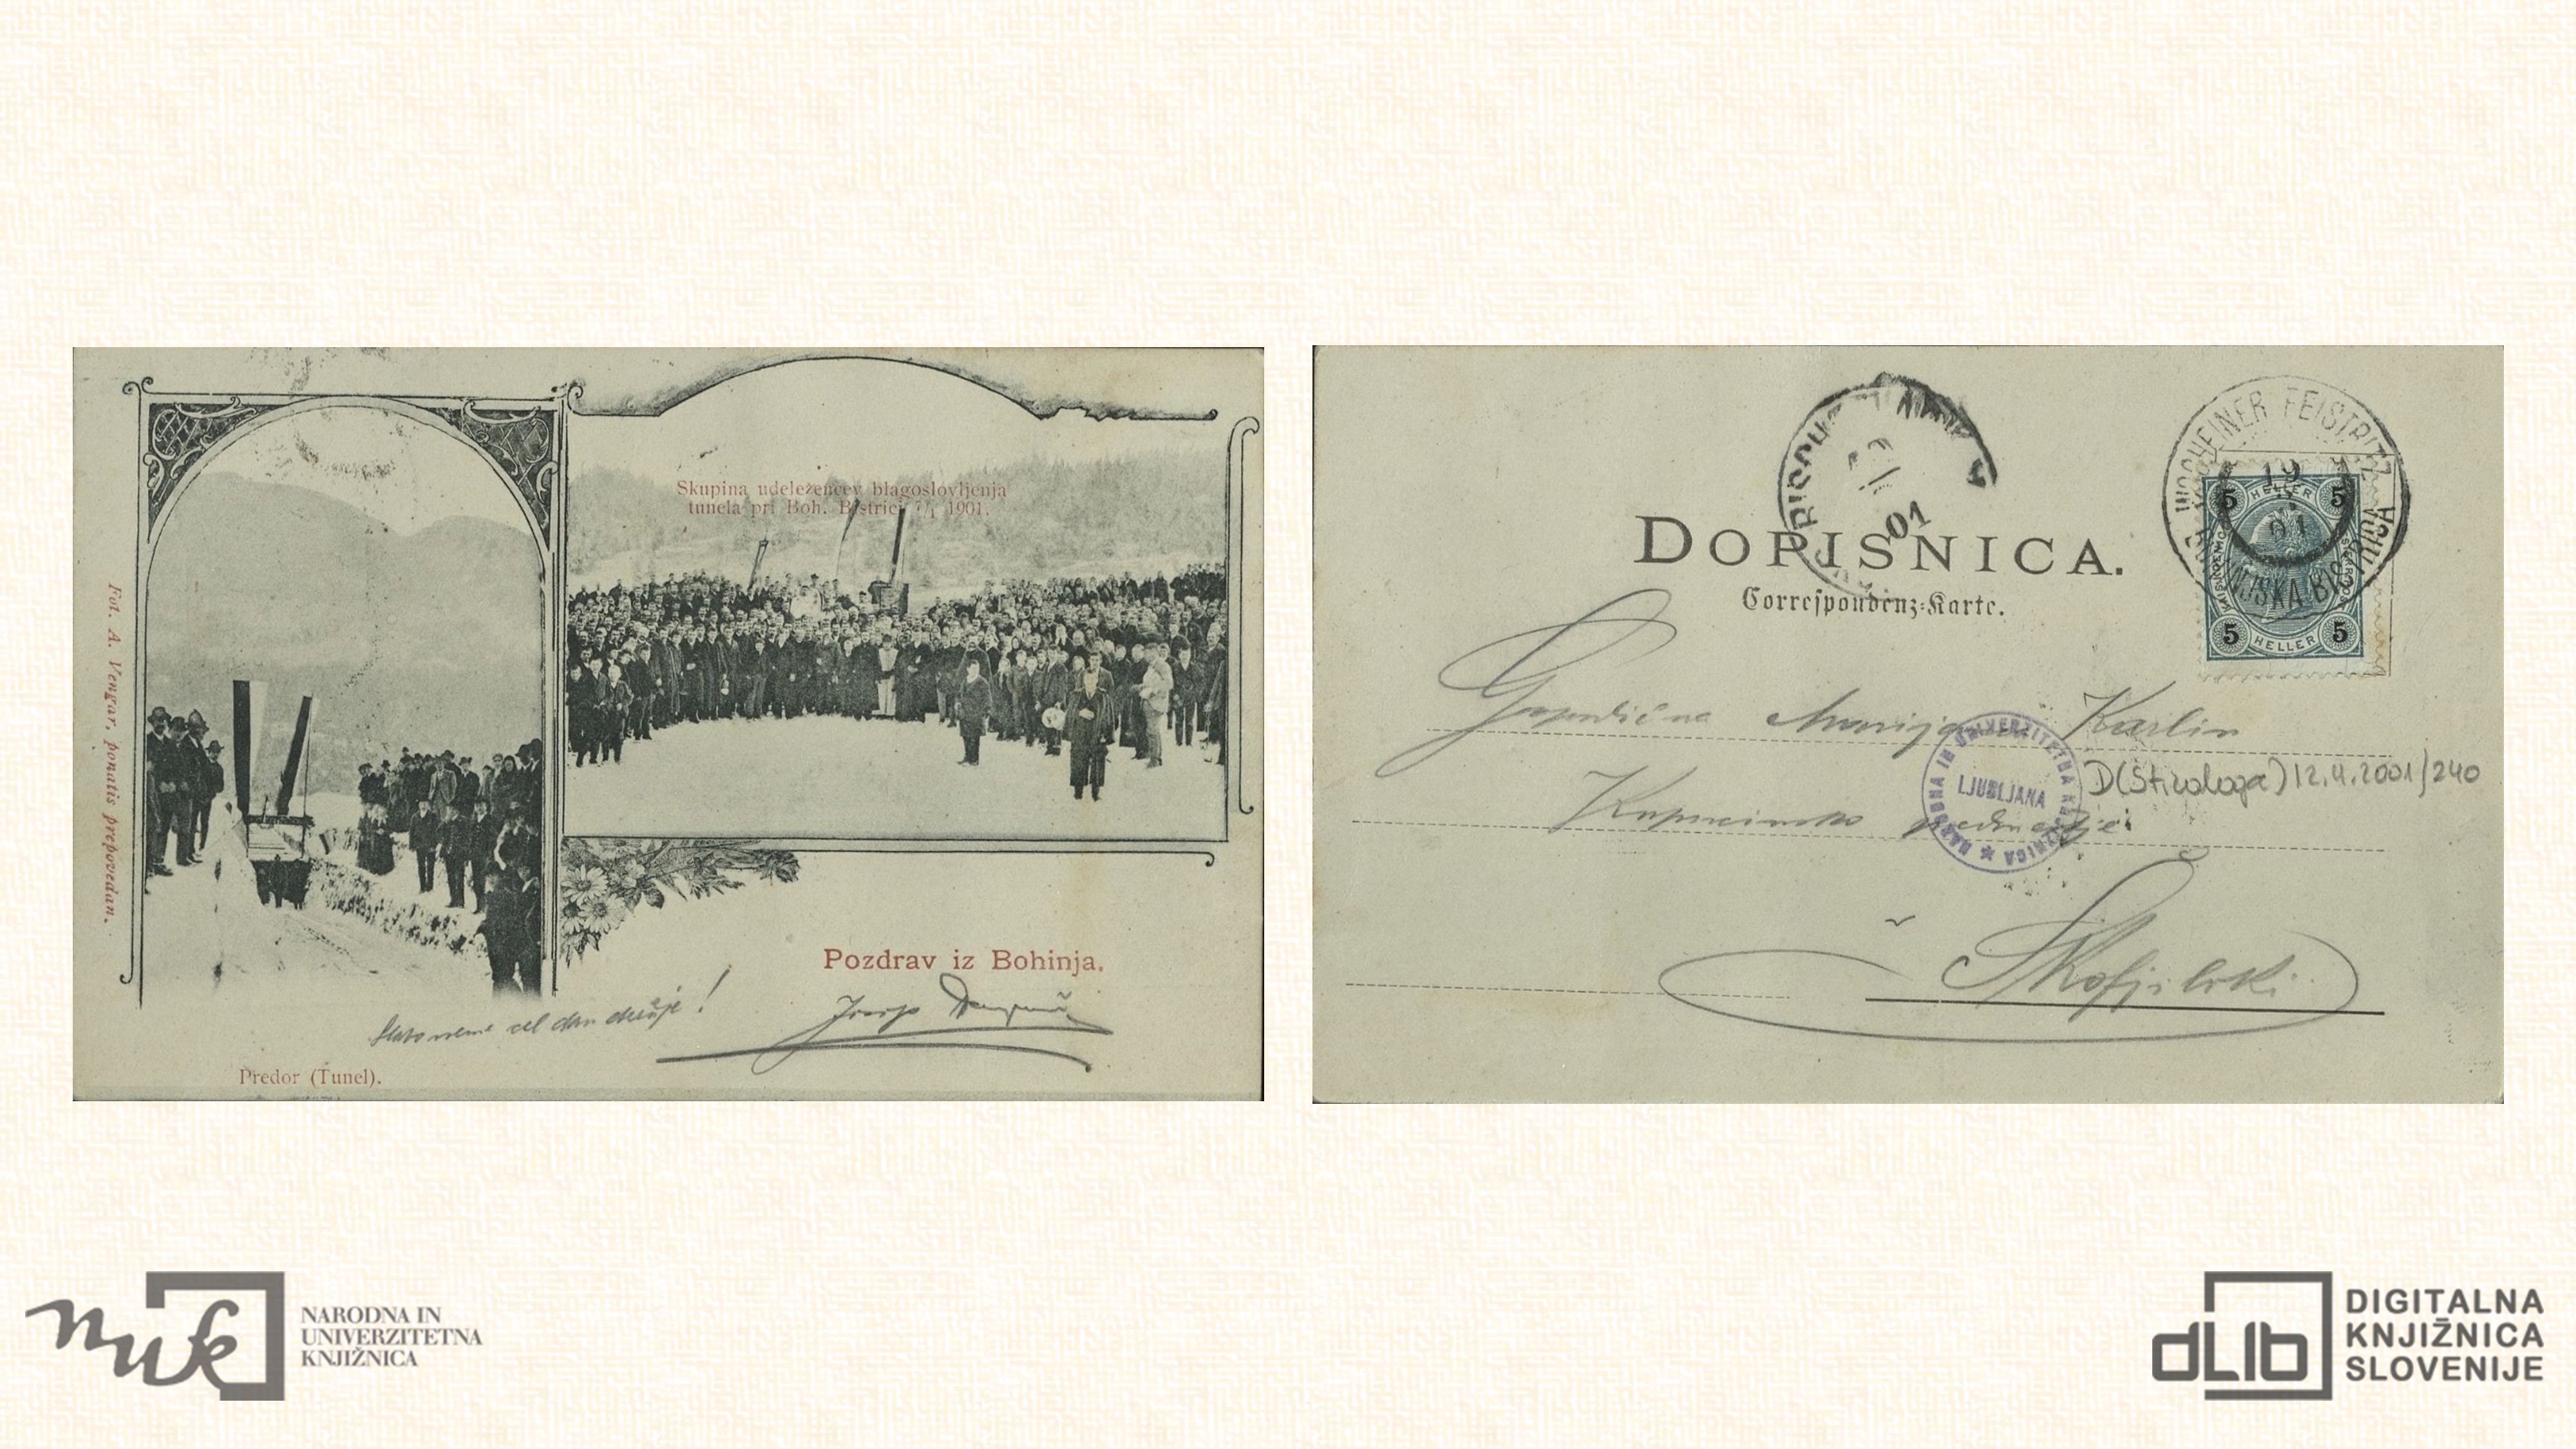 Skupina udeležencev blagoslovljenja
tunela pri Boh. Bistrici 7/I 1901.
Fot. A. Vengar, ponatis prepovedan.
Pozdrav iz Bohinja.
cel dan dežuje!
Josip
Predor (Tunel).
01
WOCHEINER FEISTRITZ
19
01
BISTRICA
DOPISNICA.
Correspondenz-Karte.
5 HELLER 5
5 HELLER 5
Gospodična Marija Karlin
NARODNA IN UNIVERZITETNA KNJIŽNICA
LJUBLJANA
D(Štrologa)12.4.2001/240
Kapucinsko predmestje
Škofji loki
nuk
NARODNA IN
UNIVERZITETNA
KNJIŽNICA
dLib
DIGITALNA
KNJIŽNICA
SLOVENIJE